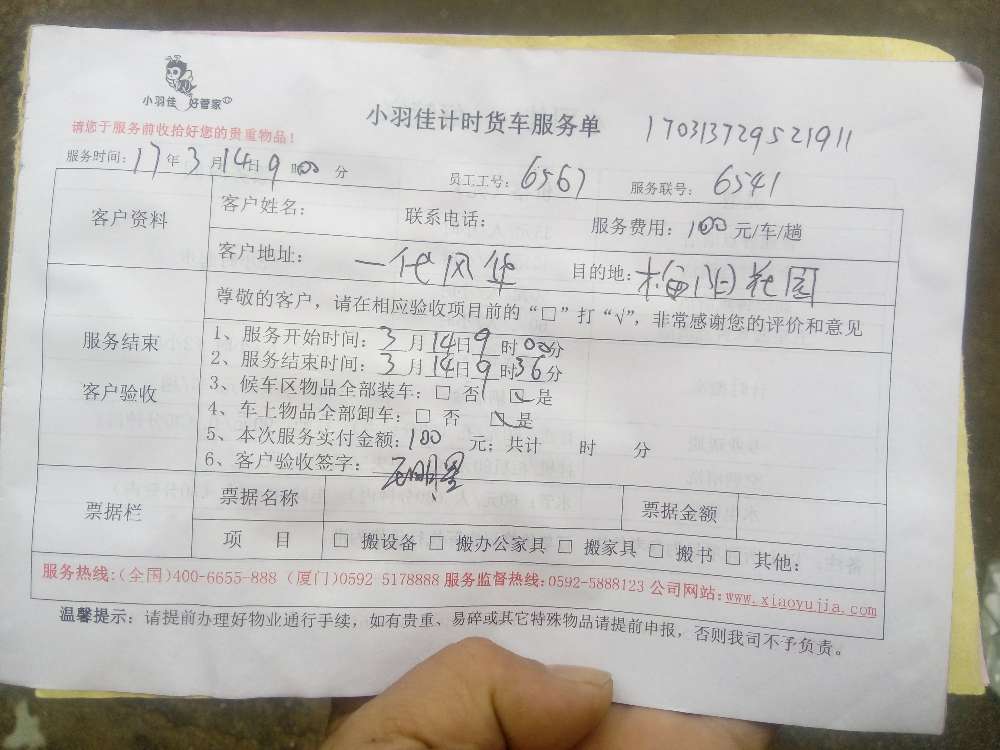 小羽佳 好管家
小羽佳计时货车服务单 170313729521911
请您于服务前收拾好您的贵重物品！
服务时间：17年3月14日9时00分 员工工号：6567 服务联号：6541
客户资料 客户姓名： 联系电话： 服务费用：100元/车/趟
客户地址：一代风华 目的地：花园
尊敬的客户，请在相应验收项目前的“□”打“√”，非常感谢您的评价和意见
服务结束
客户验收
1、服务开始时间：3月14日9时00分
2、服务结束时间：3月14日9时36分
3、候车区物品全部装车：□ 否 ☑是
4、车上物品全部卸车：□ 否 ☑是
5、本次服务实付金额：100元；共计 时 分
6、客户验收签字：
票据栏 票据名称 票据金额
项 目 □ 搬设备 □ 搬办公家具 □ 搬家具 □ 搬书 □ 其他：
服务热线：(全国)400-6655-888 (厦门)0592 5178888 服务监督热线：0592-5888123 公司网站：www.xiaoyujia.com
温馨提示：请提前办理好物业通行手续，如有贵重、易碎或其它特殊物品请提前申报，否则我司不予负责。